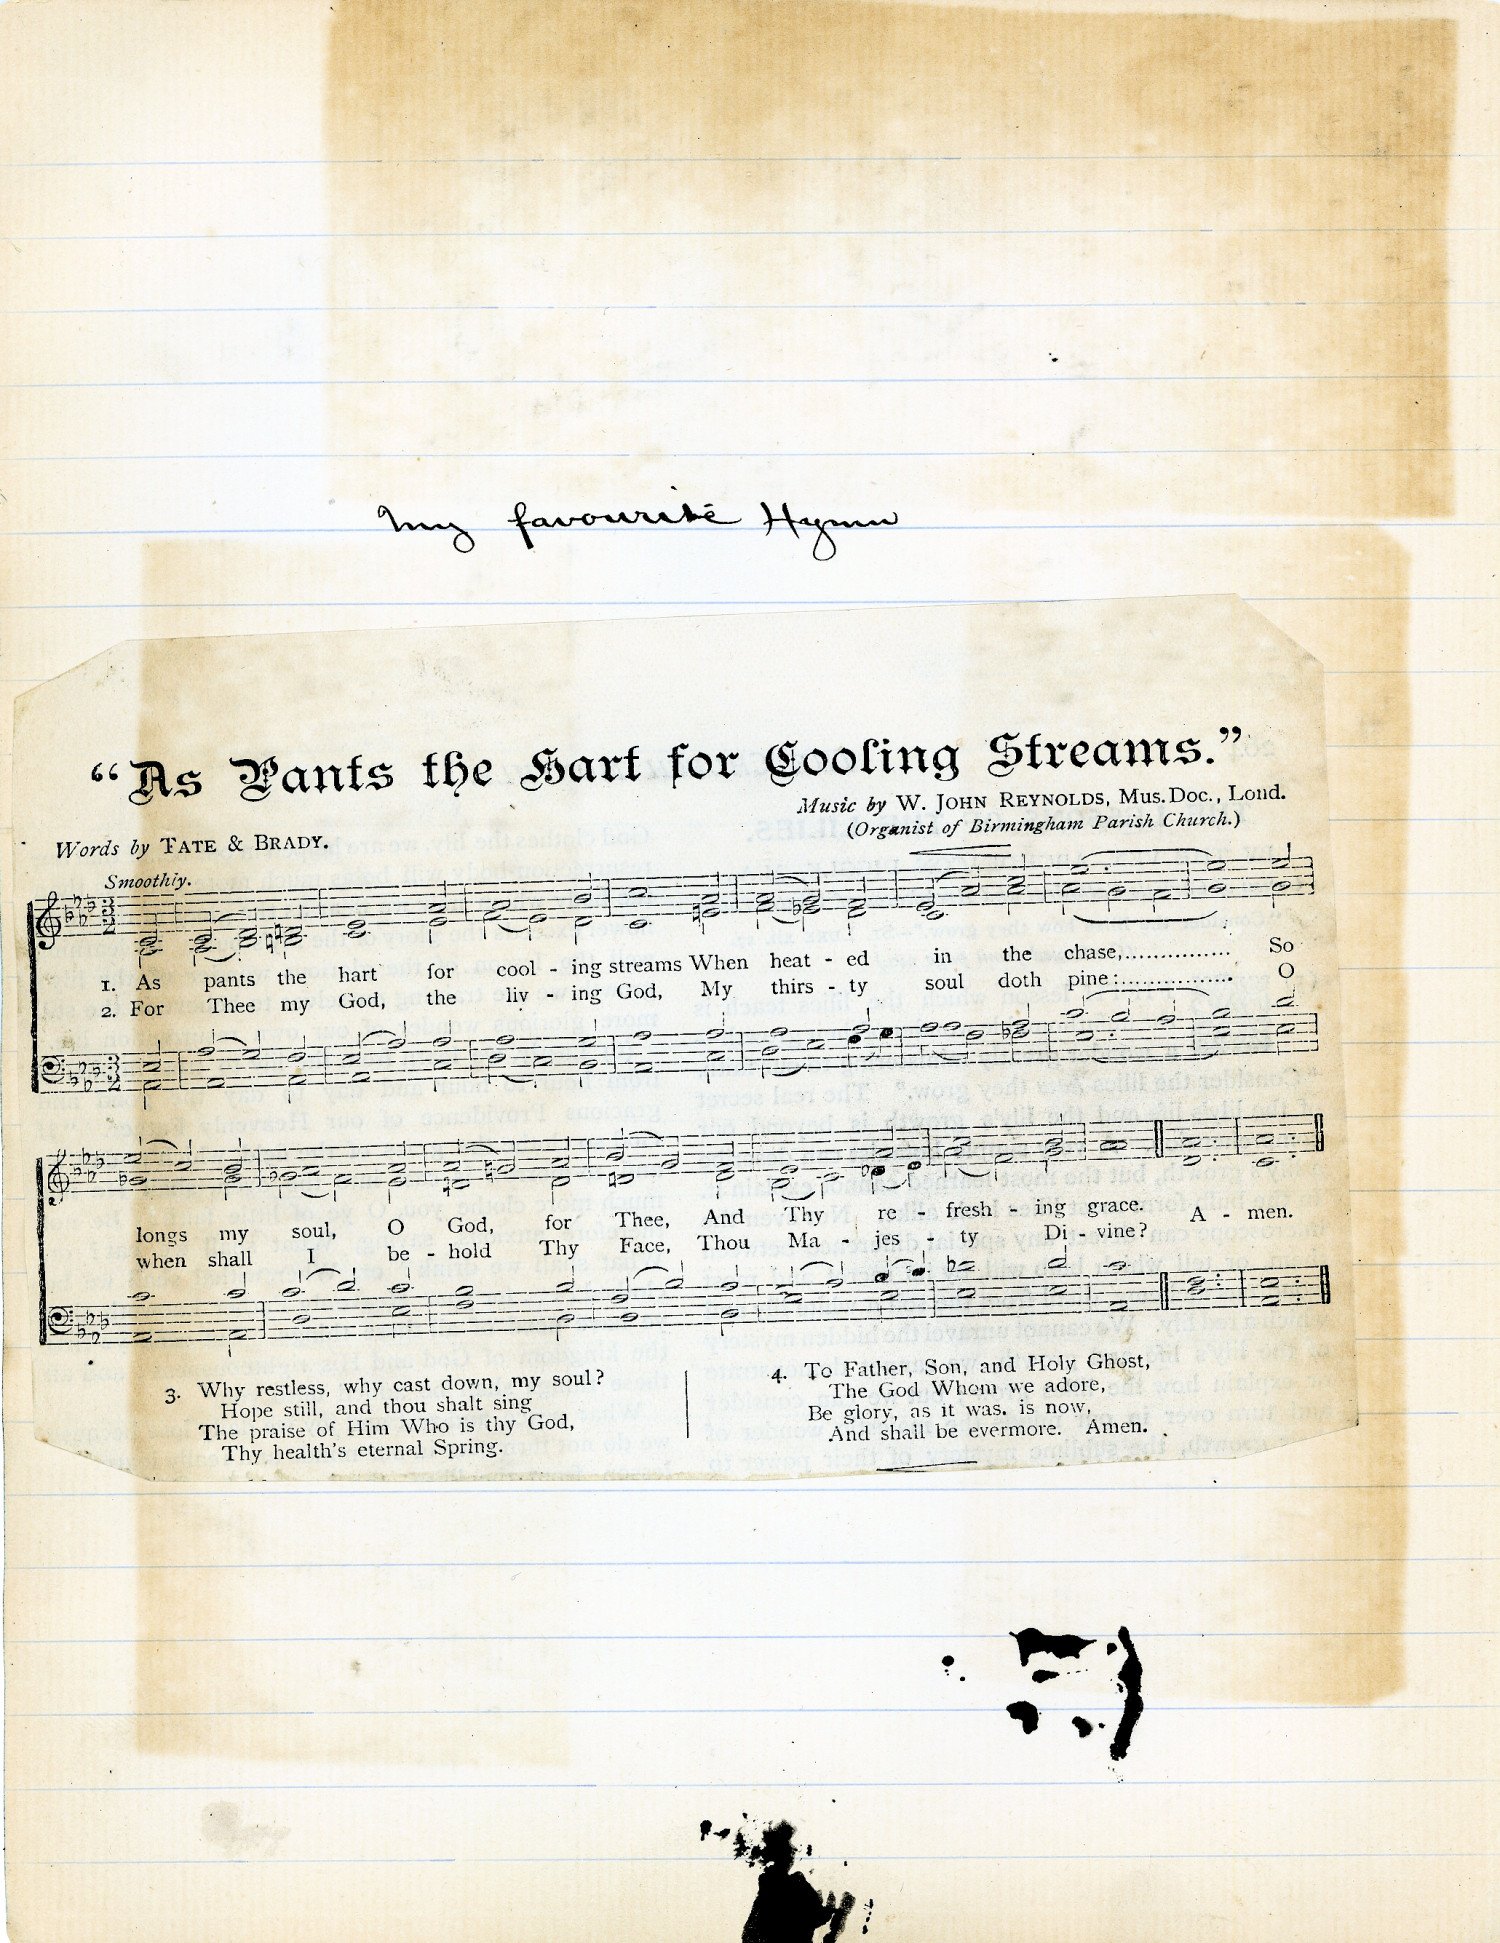 My favourite Hymn
“As Pants the Hart for Cooling Streams.”
Music by W. JOHN REYNOLDS, Mus. Doc., Lond.
(Organist of Birmingham Parish Church.)
Words by TATE & BRADY.
Smoothly.
1. As pants the hart for cool - ing streams When heat - ed in the chase,............... So
2. For Thee my God, the liv - ing God, My thirs - ty soul doth pine:................ O
longs my soul, O God, for Thee, And Thy re - fresh - ing grace. A - men.
when shall I be - hold Thy Face, Thou Ma - jes - ty Di - vine?
3. Why restless, why cast down, my soul?
Hope still, and thou shalt sing
The praise of Him Who is thy God,
Thy health's eternal Spring.
4. To Father, Son, and Holy Ghost,
The God Whom we adore,
Be glory, as it was. is now,
And shall be evermore. Amen.